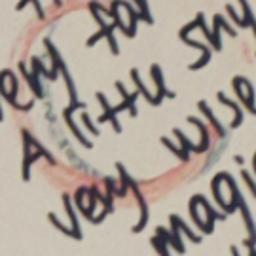 very far
A little shy
very wise
magi